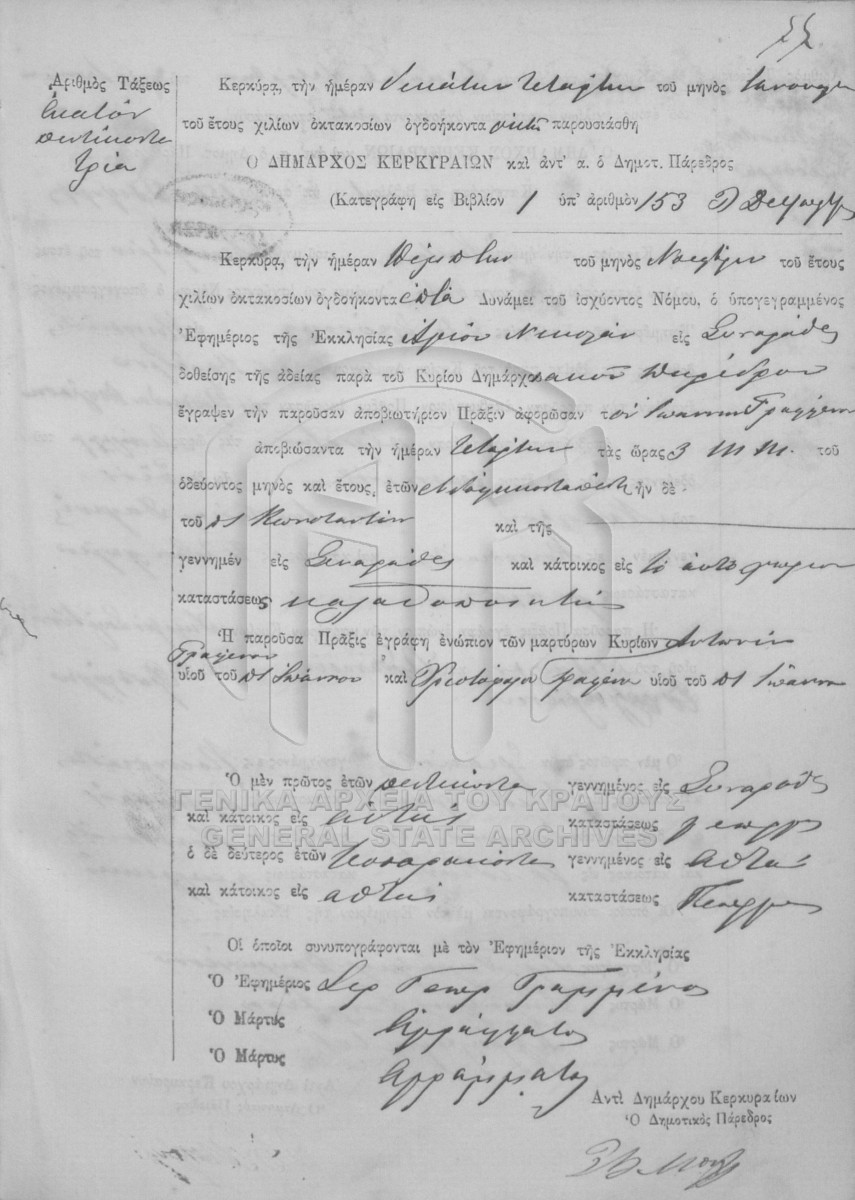 Ἀριθμὸς Τάξεως
Ἑκατὸν
πεντήκοντα
τρία
Κερκύρᾳ, τὴν ἡμέραν δεκάτην τετάρτην τοῦ μηνὸς
τοῦ ἔτους χιλίων ὀκτακοσίων ὀγδοήκοντα ὀκτὼ παρουσιάσθη
Ὁ ΔΗΜΑΡΧΟΣ ΚΕΡΚΥΡΑΙΩΝ καὶ ἀντ' α. ὁ Δημοτ. Πάρεδρος
(Κατεγράφη εἰς Βιβλίον 1 ὑπ' ἀριθμὸν 153
Κερκύρᾳ, τὴν ἡμέραν Πέμπτην τοῦ μηνὸς τοῦ ἔτους
χιλίων ὀκτακοσίων ὀγδοήκοντα ἑπτὰ Δυνάμει τοῦ ἰσχύοντος Νόμου, ὁ ὑπογεγραμμένος
Ἐφημέριος τῆς Ἐκκλησίας Ἁγίου Νικολάου εἰς Συναράδες
δοθείσης τῆς ἀδείας παρὰ τοῦ Κυρίου Δημάρχ Παρέδρου
ἔγραψεν τὴν παροῦσαν ἀποβιωτήριον Πρᾶξιν ἀφορῶσαν τὸν Ἰωάννην
ἀποβιώσαντα τὴν ἡμέραν τετάρτην τὰς ὥρας 3 μ.μ. τοῦ
ὁδεύοντος μηνὸς καὶ ἔτους, ἐτῶν ἦν δὲ
τοῦ ποτ Κωνσταντίν καὶ τῆς
γεννημέν εἰς Συναράδες καὶ κάτοικος εἰς τὸ αὐτὸ χωρίον
καταστάσεως καλαθοποιητής
Ἡ παροῦσα Πρᾶξις ἐγράφη ἐνώπιον τῶν μαρτύρων Κυρίων Ἀντωνίου
Γραμμένου
υἱοῦ τοῦ ποτ Ἰωάννου καὶ υἱοῦ τοῦ ποτ Ἰωάννου
Ὁ μὲν πρῶτος ἐτῶν πεντήκοντα γεννημένος εἰς Συναράδες
ΓΕΝΙΚΑ ΑΡΧΕΙΑ ΤΟΥ ΚΡΑΤΟΥΣ
καὶ κάτοικος εἰς αὐτάς καταστάσεως γεωργός
GENERAL STATE ARCHIVES
ὁ δὲ δεύτερος ἐτῶν τεσσαράκοντα γεννημένος εἰς αὐτάς
καὶ κάτοικος εἰς αὐτάς καταστάσεως Γεωργός
Οἱ ὁποῖοι συνυπογράφονται μὲ τὸν Ἐφημέριον τῆς Ἐκκλησίας
Ὁ Ἐφημέριος Γραμμένος
Ὁ Μάρτυς ἀγράμματος
Ὁ Μάρτυς ἀγράμματος
Ἀντὶ Δημάρχου Κερκυραίων
Ὁ Δημοτικὸς Πάρεδρος